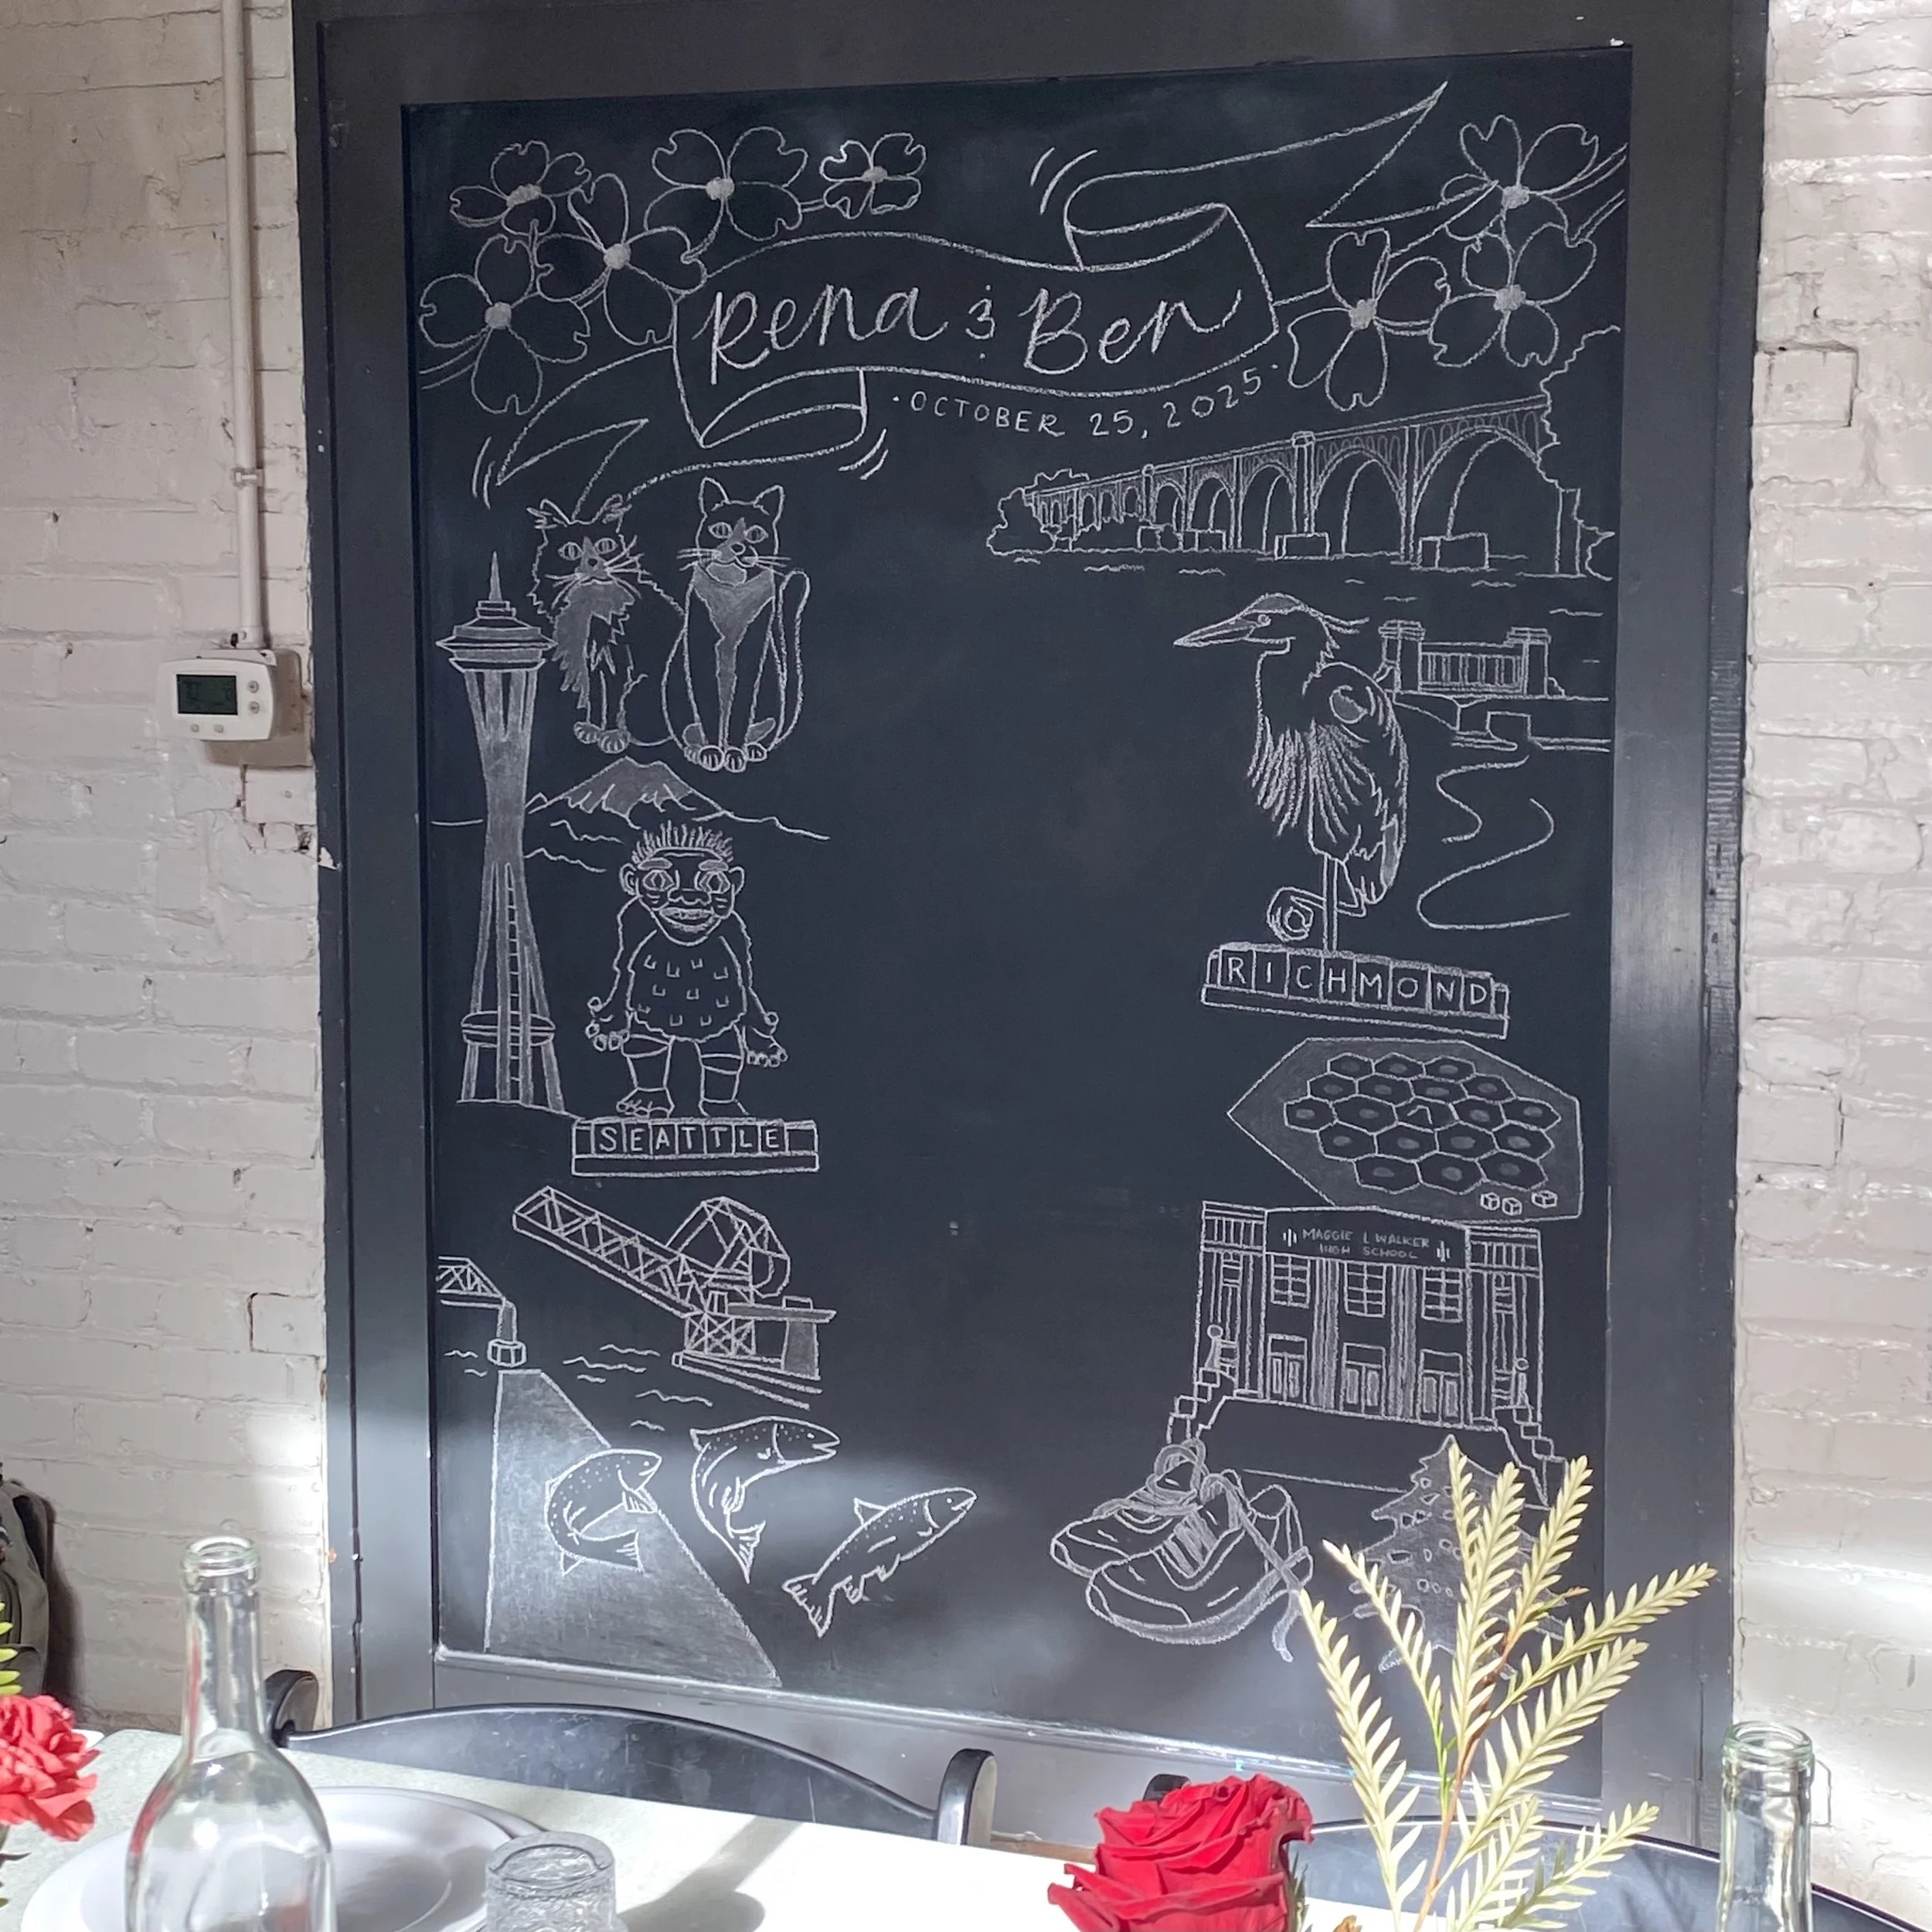 Rena & Ben
·OCTOBER 25, 2025·
RICHMOND
SEATTLE
MAGGIE L WALKER
HIGH SCHOOL